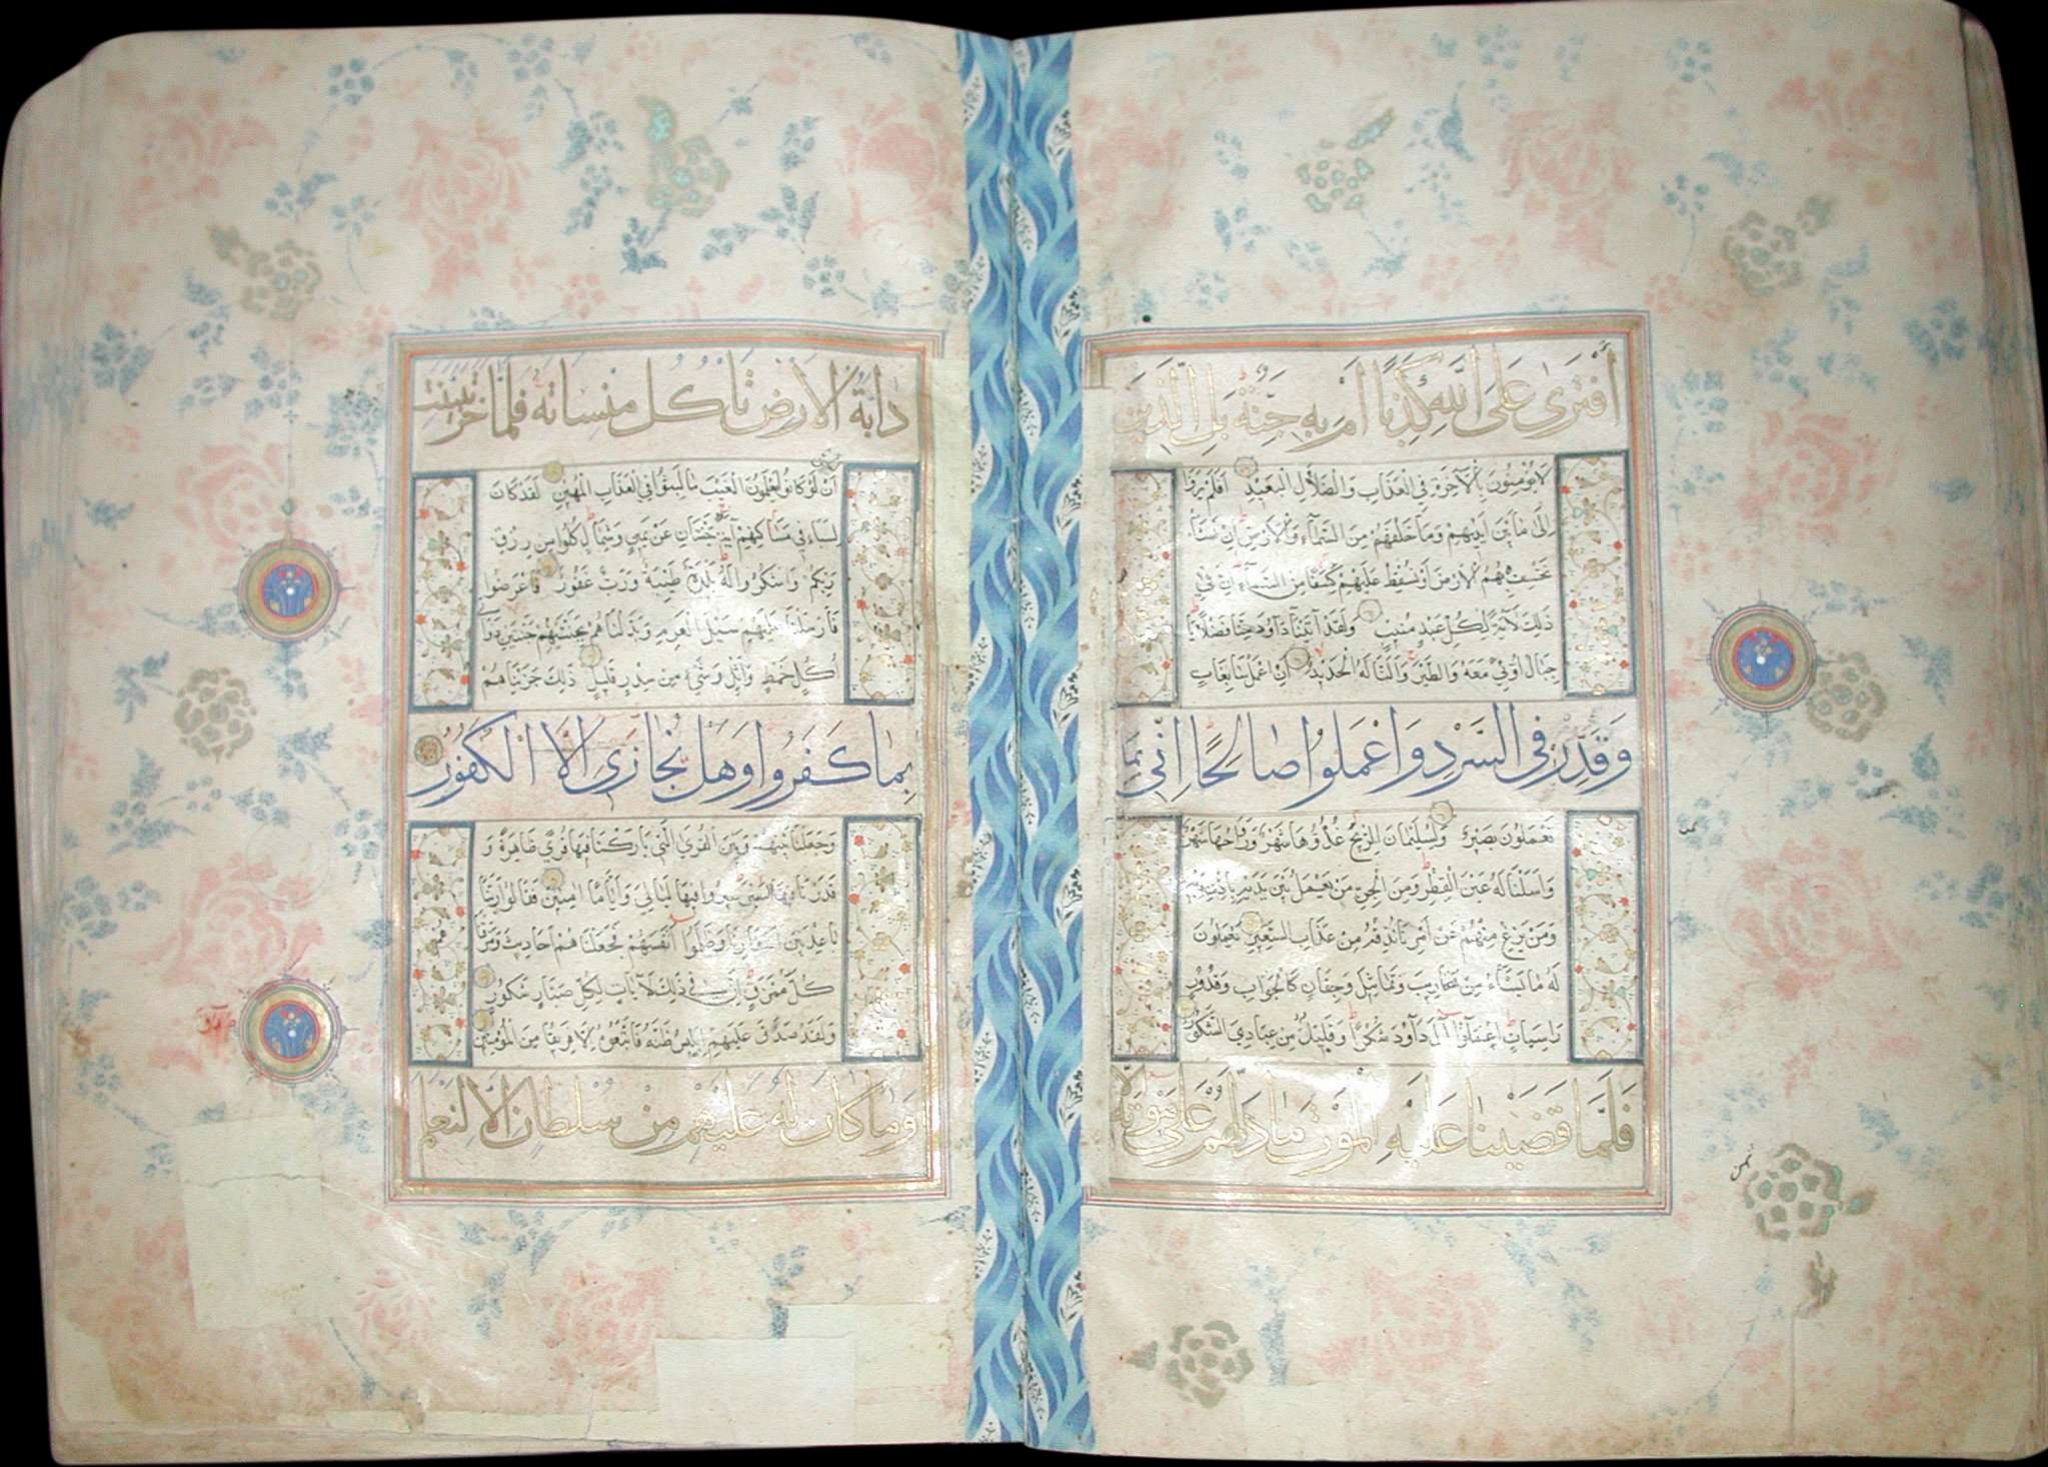 أَفْتَرَىٰ عَلَى اللَّهِ كَذِبًا أَمْ بِهِ جِنَّةٌ بَلِ الَّذِينَ
لَا يُؤْمِنُونَ بِالْآخِرَةِ فِي الْعَذَابِ وَالضَّلَالِ الْبَعِيدِ أَفَلَمْ يَرَوْا
إِلَىٰ مَا بَيْنَ أَيْدِيهِمْ وَمَا خَلْفَهُمْ مِنَ السَّمَاءِ وَالْأَرْضِ إِنْ نَشَأْ
نَخْسِفْ بِهِمُ الْأَرْضَ أَوْ نُسْقِطْ عَلَيْهِمْ كِسَفًا مِنَ السَّمَاءِ إِنَّ فِي
ذَٰلِكَ لَآيَةً لِكُلِّ عَبْدٍ مُنِيبٍ وَلَقَدْ آتَيْنَا دَاوُودَ مِنَّا فَضْلًا يَا
جِبَالُ أَوِّبِي مَعَهُ وَالطَّيْرَ وَأَلَنَّا لَهُ الْحَدِيدَ أَنِ اعْمَلْ سَابِغَاتٍ
وَقَدِّرْ فِي السَّرْدِ وَاعْمَلُوا صَالِحًا إِنِّي بِمَا
تَعْمَلُونَ بَصِيرٌ وَلِسُلَيْمَانَ الرِّيحَ غُدُوُّهَا شَهْرٌ وَرَوَاحُهَا شَهْرٌ
وَأَسَلْنَا لَهُ عَيْنَ الْقِطْرِ وَمِنَ الْجِنِّ مَنْ يَعْمَلُ بَيْنَ يَدَيْهِ بِإِذْنِ رَبِّهِ
وَمَنْ يَزِغْ مِنْهُمْ عَنْ أَمْرِنَا نُذِقْهُ مِنْ عَذَابِ السَّعِيرِ يَعْمَلُونَ
لَهُ مَا يَشَاءُ مِنْ مَحَارِيبَ وَتَمَاثِيلَ وَجِفَانٍ كَالْجَوَابِ وَقُدُورٍ
رَاسِيَاتٍ اعْمَلُوا آلَ دَاوُودَ شُكْرًا وَقَلِيلٌ مِنْ عِبَادِيَ الشَّكُورُ
فَلَمَّا قَضَيْنَا عَلَيْهِ الْمَوْتَ مَا دَلَّهُمْ عَلَىٰ مَوْتِهِ إِلَّا
دَابَّةُ الْأَرْضِ تَأْكُلُ مِنْسَأَتَهُ فَلَمَّا خَرَّ تَبَيَّنَتِ
الْجِنُّ
أَنْ لَوْ كَانُوا يَعْلَمُونَ الْغَيْبَ مَا لَبِثُوا فِي الْعَذَابِ الْمُهِينِ لَقَدْ كَانَ
لِسَبَإٍ فِي مَسَاكِنِهِمْ آيَةٌ جَنَّتَانِ عَنْ يَمِينٍ وَشِمَالٍ كُلُوا مِنْ رِزْقِ
رَبِّكُمْ وَاشْكُرُوا لَهُ بَلْدَةٌ طَيِّبَةٌ وَرَبٌّ غَفُورٌ فَأَعْرَضُوا
فَأَرْسَلْنَا عَلَيْهِمْ سَيْلَ الْعَرِمِ وَبَدَّلْنَاهُمْ بِجَنَّتَيْهِمْ جَنَّتَيْنِ ذَوَاتَيْ
أُكُلٍ خَمْطٍ وَأَثْلٍ وَشَيْءٍ مِنْ سِدْرٍ قَلِيلٍ ذَٰلِكَ جَزَيْنَاهُمْ
بِمَا كَفَرُوا وَهَلْ نُجَازِي إِلَّا الْكَفُورَ
وَجَعَلْنَا بَيْنَهُمْ وَبَيْنَ الْقُرَى الَّتِي بَارَكْنَا فِيهَا قُرًى ظَاهِرَةً وَ
قَدَّرْنَا فِيهَا السَّيْرَ سِيرُوا فِيهَا لَيَالِيَ وَأَيَّامًا آمِنِينَ فَقَالُوا رَبَّنَا
بَاعِدْ بَيْنَ أَسْفَارِنَا وَظَلَمُوا أَنْفُسَهُمْ فَجَعَلْنَاهُمْ أَحَادِيثَ وَمَزَّقْنَاهُمْ
كُلَّ مُمَزَّقٍ إِنَّ فِي ذَٰلِكَ لَآيَاتٍ لِكُلِّ صَبَّارٍ شَكُورٍ
وَلَقَدْ صَدَّقَ عَلَيْهِمْ إِبْلِيسُ ظَنَّهُ فَاتَّبَعُوهُ إِلَّا فَرِيقًا مِنَ الْمُؤْمِنِينَ
وَمَا كَانَ لَهُ عَلَيْهِمْ مِنْ سُلْطَانٍ إِلَّا لِنَعْلَمَ